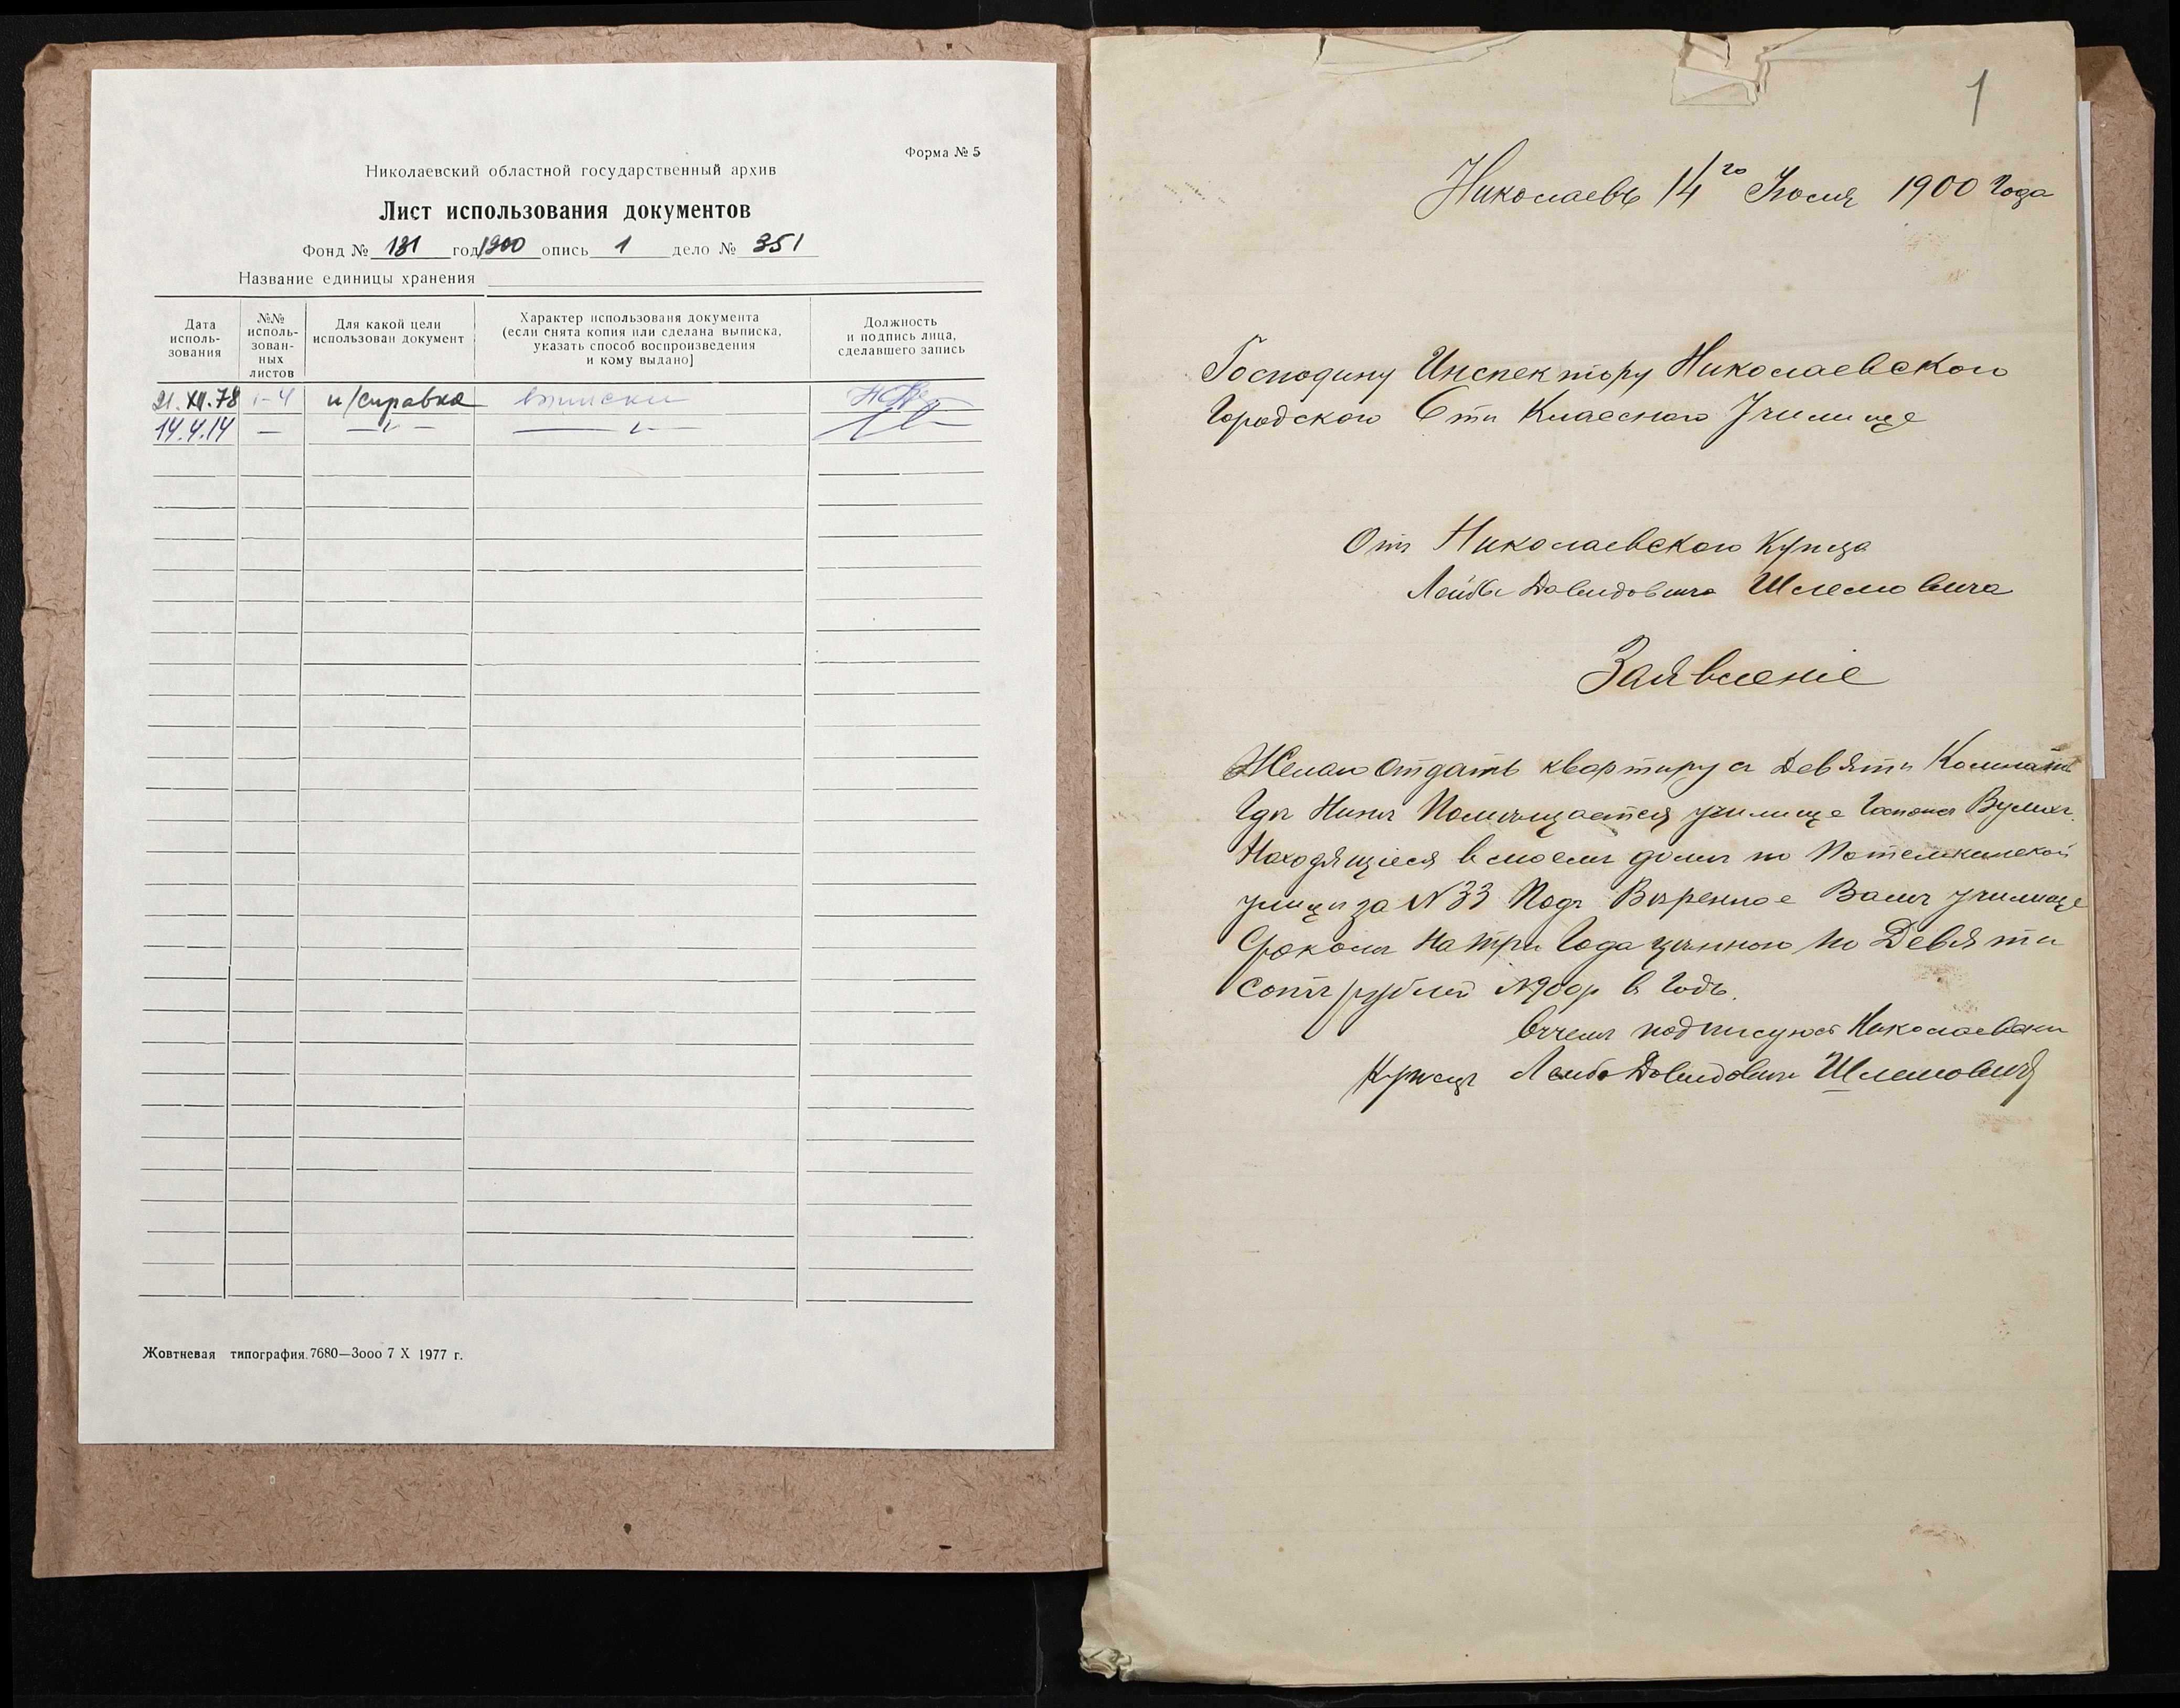 Форма № 5
Николаевский областной государственный архив
Лист использования документов
Фонд № 131 год 1900 опись 1 дело № 351
Название единицы хранения
Дата исполь-зования
№№ исполь-зован-ных листов
Для какой цели использован документ
Характер использованя документа (если снята копия или сделана выписка, указать способ воспроизведения и кому выдано]
Должность и подпись лица, сделавшего запись
21.XII.78 1-4 и/справка выписки
14.4.14 — —"— —"—
Жовтневая типография. 7680—3ооо 7 X 1977 г.
1
Николаевъ 14го Июля 1900 Года
Господину Инспектору Николаевского
Городского 6ти Класного Училище
Отъ Николаевского Купца
Лейбы Давидовича Шлемовича
Заявленіе
Желаю Отдать квартиру съ Девяти Комнатъ
Где Нинъ Помѣщается училище
Находящіеся в моемъ доме по Потемкинской
улицы за N 33 Подъ Вверенное Вамъ училище
Сроком на три Года ценною по Девяти
Сотъ рублей N900р в Годъ.
Вчемъ подписуюсь Николаевски
Купецъ Лейба Давидовичъ Шлемовичъ